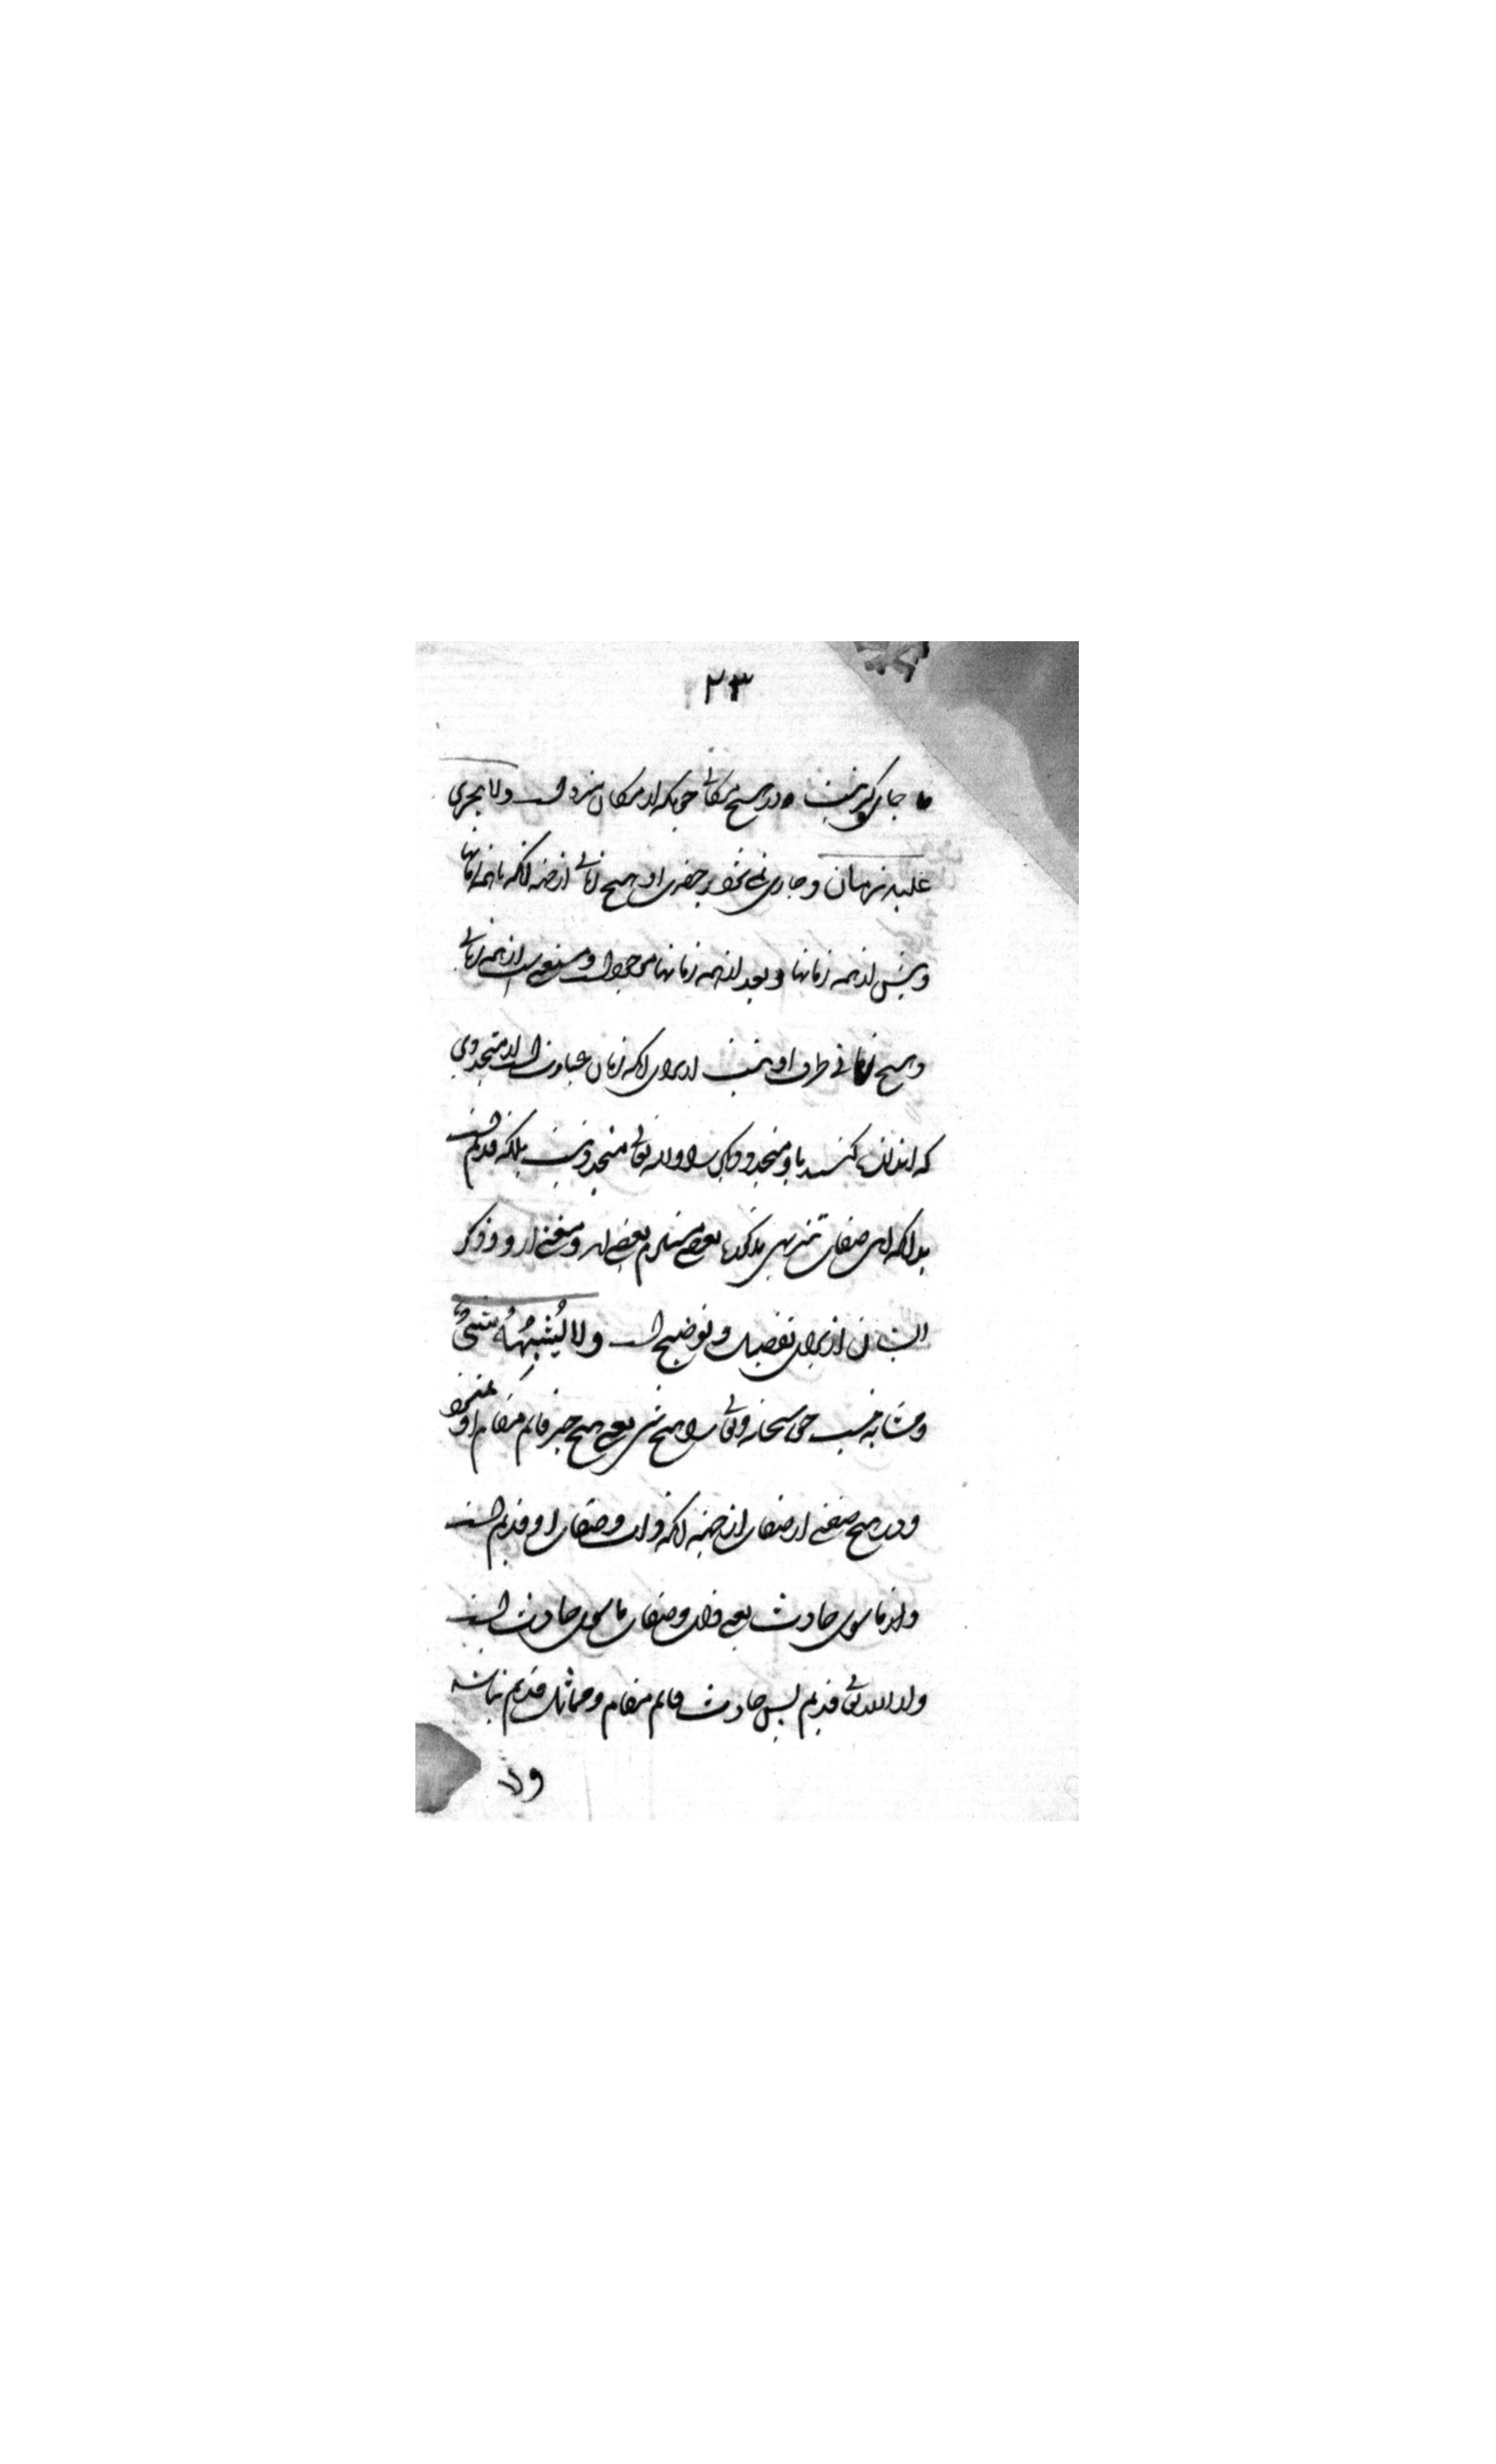 ۲۳
جای گیر نیست در هیچ مکانی چرا که از مکان منزه است ولا یجری
علیه زمان و جاری نمی‌شود بر حضرت او هیچ زمانی از جهة آنکه با همه زمانها
و پیش از همه زمانها و بعد از همه زمانها موجود است و مستغنی است از همه زمانی
و هیچ زمانی ظرف او نیست از برای آنکه زمان عبارت است از متجددی
که اندازه کنند باو متجدد دیگر را و الله تعالی متجدد نیست بلکه قدیم است
بدانکه این صفات تنزیهی مذکوره بعضی مستلزم بعضی اند و مغنی از و ذکر
ایشان از برای تفصیل و توضیح است ولا یُشبِهُهُ شیءٌ
و مشابه نیست حق سبحانه وتعالی را هیچ شی یعنی هیچ چیز قائم مقام او نمی‌شود
و در هیچ صفتی از صفات از جهة آنکه ذات و صفات او قدیم است
و از ماسوی حادث یعنی ذات و صفات ماسوی حادث است
و از الله تعالی قدیم پس حادث قائم مقام و مماثل قدیم نباشد
ولا